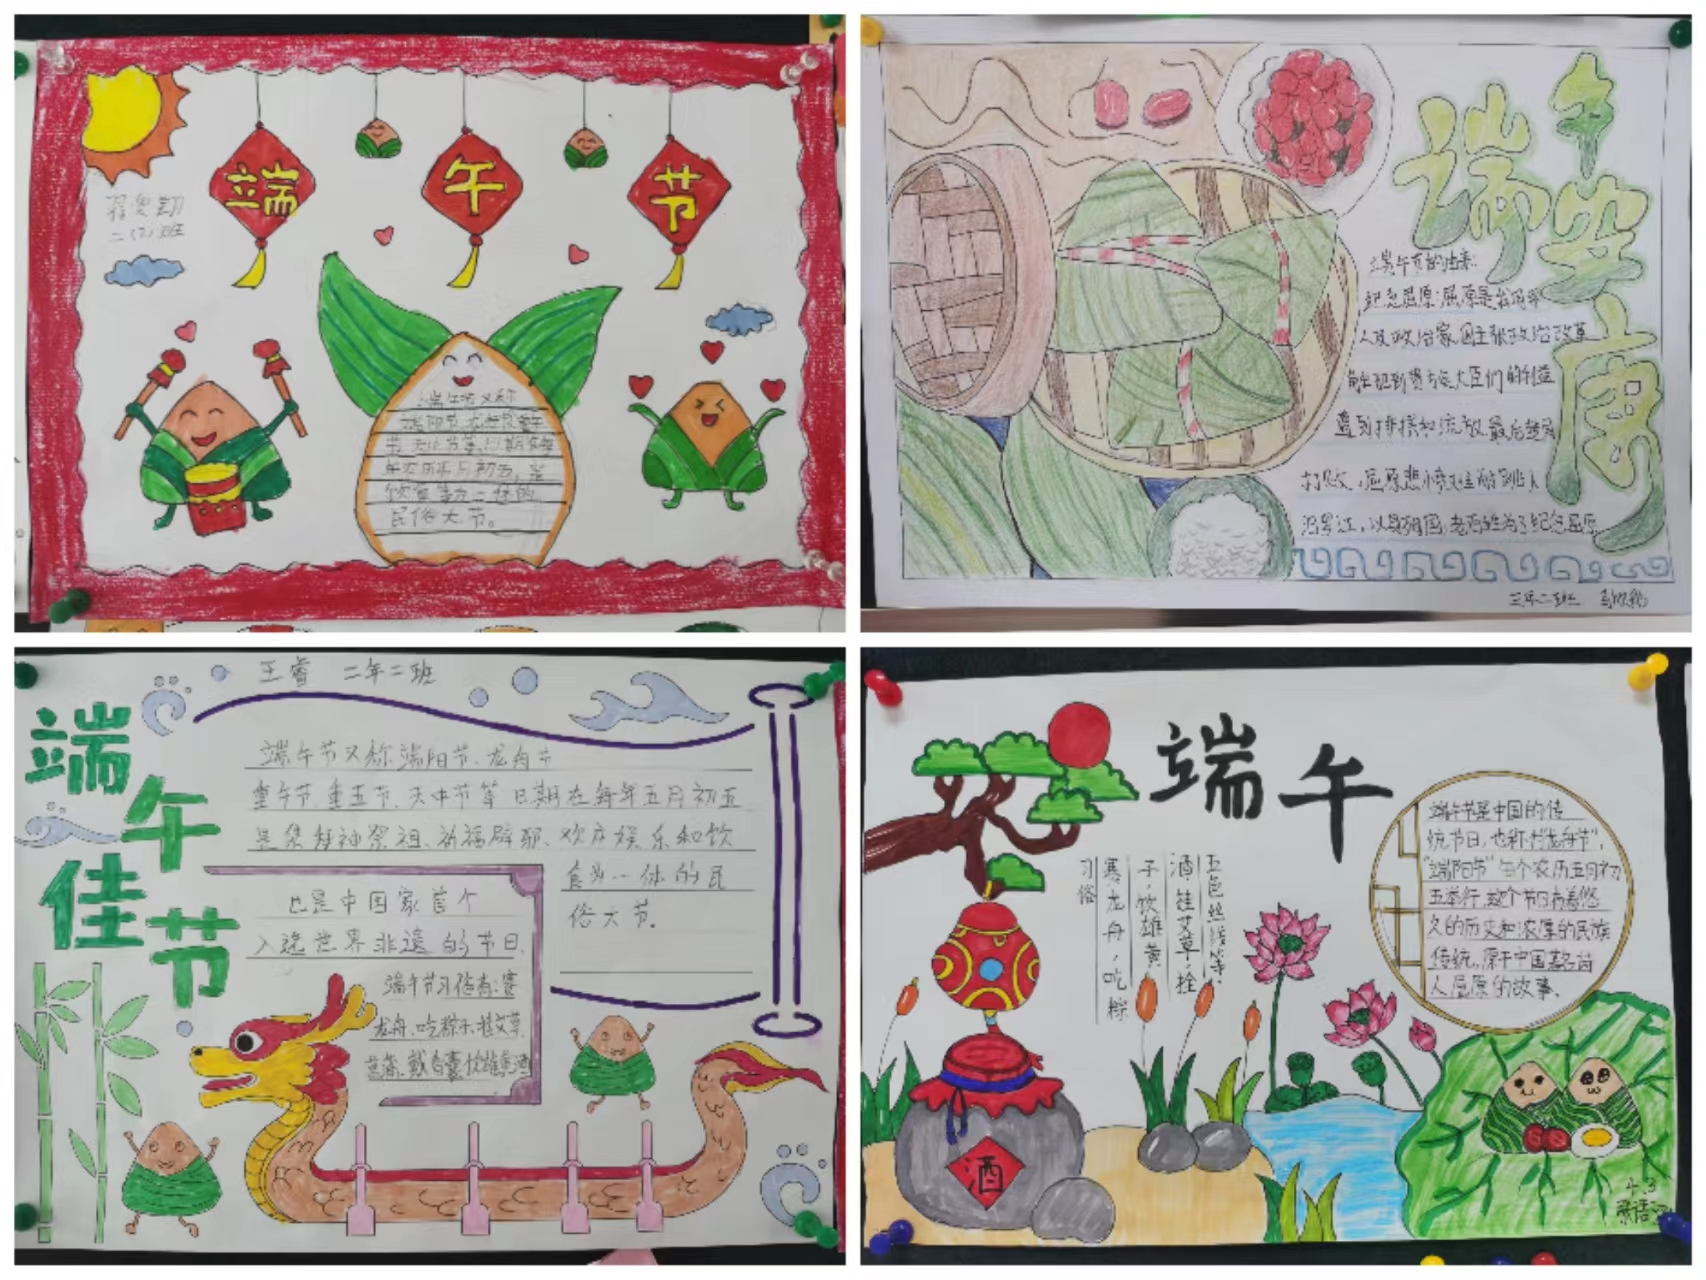 端午节
二(2)班
端午节又称
端阳节、龙舟节、重午
节、天中节等,日期在每
年农历五月初五,是
饮食等为一体的
民俗大节。
端午安康
端午节的由来:
纪念屈原:屈原是我国
人及政治家,因主张政治改革
触犯到贵族大臣们的利益
遭到排挤和流放,最后楚国
打败,屈原悲愤
汨罗江,以身殉国,老百姓为了纪念屈原
三年二班
端午佳节
王睿 二年二班
端午节又称端阳节、龙舟节
重午节、重五节、天中节等日期在每年五月初五
是集拜神祭祖、祈福辟邪、欢庆娱乐和饮
食为一体的民
俗大节.
也是中国家首个
入选世界非遗的节日.
端午节习俗有:赛
龙舟、吃粽子、挂艾草
菖蒲、戴香囊、饮雄黄酒
端午
五色丝线等
酒,挂艾草,拴
子,饮雄黄
赛龙舟,吃粽
习俗
端午节是中国的传
统节日,也称作“龙舟节”,
“端阳节”每个农历五月初
五举行,这个节日有着悠
久的历史和浓厚的民族
传统,源于中国著名诗
人屈原的故事、
酒
4.3